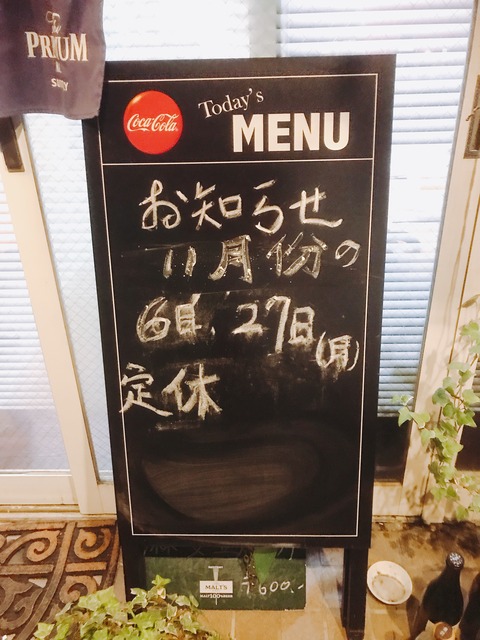 PREMIUM
Coca-Cola
Today's
MENU
お知らせ
11月份の
6日, 27日
(月)
定休
MALT'S
600.-